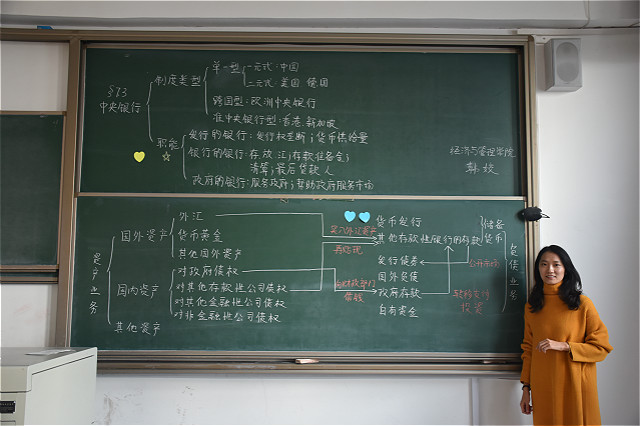 §13
中央银行
制度类型
单一型
一元式：中国
二元式：美国 德国
跨国型：欧洲中央银行
准中央银行型：香港、新加坡
职能
发行的银行：发行权垄断；货币供给量
银行的银行：存、放、汇；存款准备金；
清算；最后贷款人
政府的银行：服务政府；帮助政府服务市场
经济与管理学院
资产业务
国外资产
外汇
货币黄金
其他国外资产
国内资产
对政府债权
对其他存款性公司债权
对其他金融性公司债权
对非金融性公司债权
其他资产
买入外汇资产
再贴现
货币发行
其他存款性银行的存款
储备
货币
发行债券
国外负债
政府存款
自有资金
公开市场
转移支付
投资
负债业务